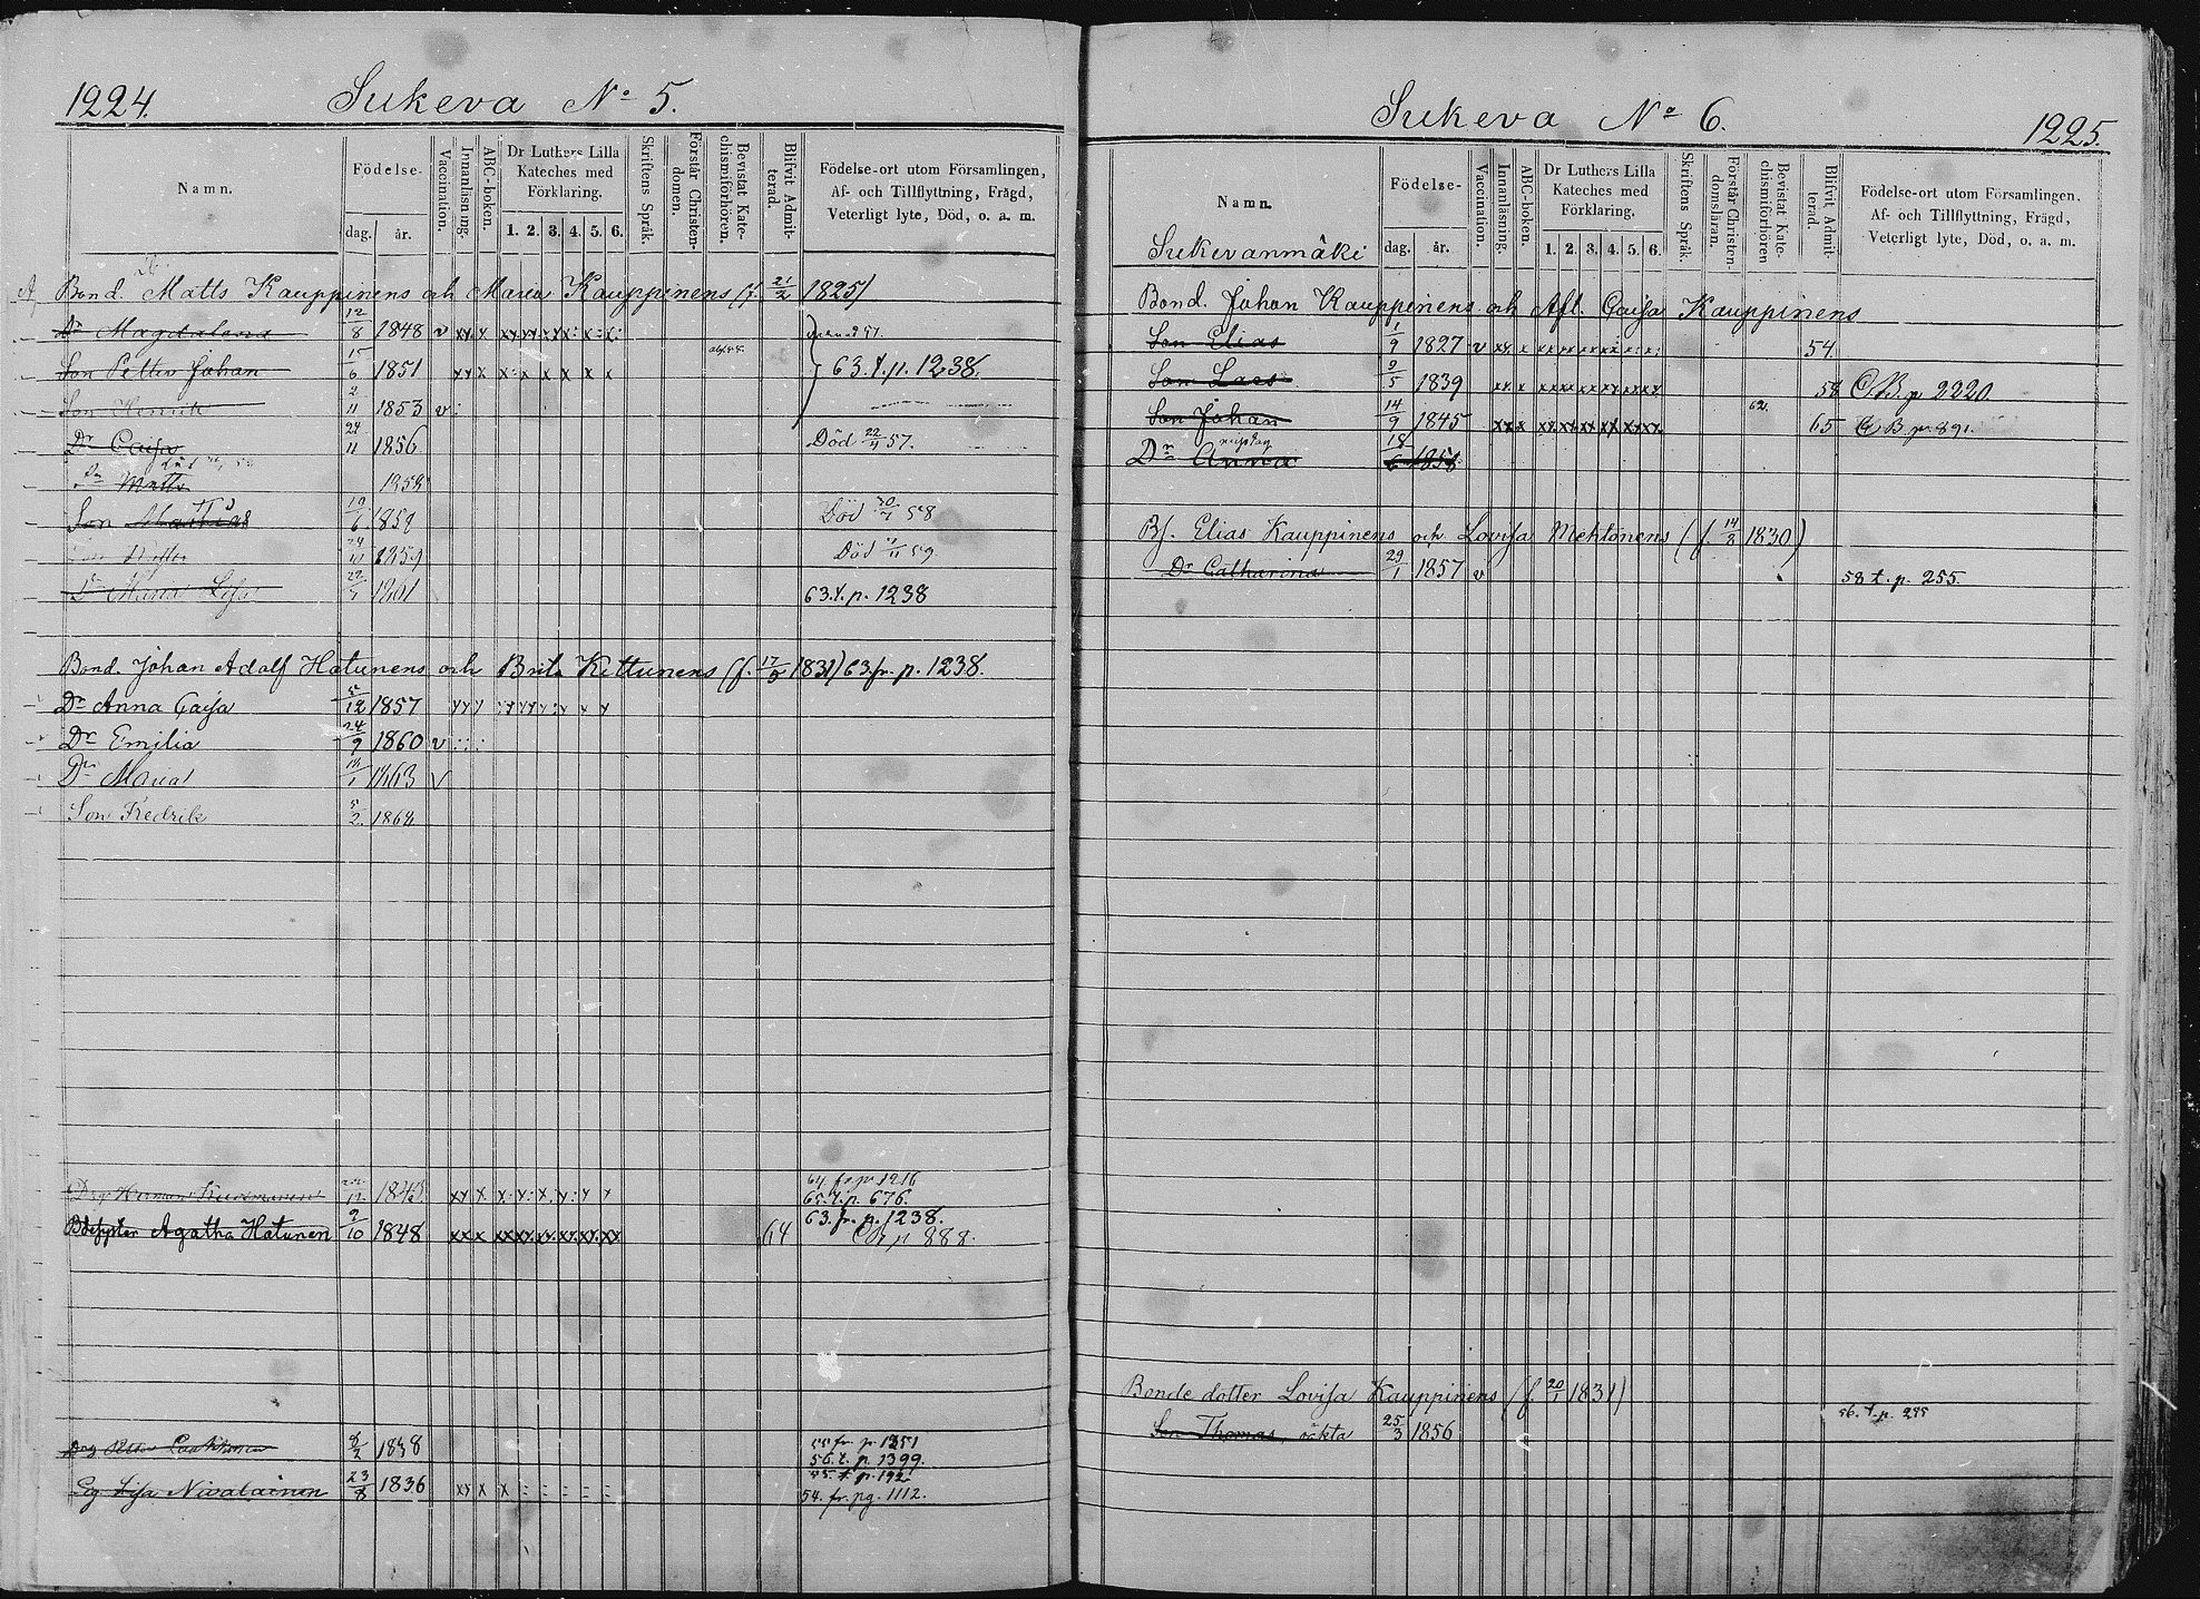 1224.
Sukeva No 5.
Namn.
Födelse-
dag.
år.
Vaccination.
Innanläsning.
ABC-boken.
Dr Luthers Lilla
Kateches med
Förklaring.
1. 2. 3. 4. 5. 6.
Skriftens Språk.
Förstår Christen-
domen.
Bevistat Kate-
chismiförhören.
Blifvit Admit-
terad.
Födelse-ort utom Församlingen,
Af- och Tillflyttning, Frägd,
Veterligt lyte, Död, o. a. m.
Bond. Matts Kauppinens och Maria Kauppinens (f. 21/2 1825)
Dr Magdalena 12/8 1848 v
Son Petter Johan 15/6 1851 63. t. p. 1238.
Son Henrik 2/11 1853 v
Dr Caisa 24/11 1856 Död 22/4 57.
Matts
Son Mathias 19/6 Död 58
1859 Död 59
Dr Maria Lisa 1861 63. t. p. 1238
Bond. Johan Adolf Hatunens och Brita Kettunens (f. 17/5 1831) 63. fr. p. 1238.
Dr Anna Caisa 5/12 1857
Dr Emilia 24/9 1860 v
Dr Maria 1863 v
Son Fredrik 5/2 1864
64 fr. p. 1216
Drg Herman 12 65. t. p. 676.
63. fr. p. 1238.
Agatha Hatunen 9/10 1848 64 p 888.
55 fr. p 1351
Drg 8/2 1838 56. t. p. 1399.
55. t. p. 192
Lisa Nivalainen 23/8 1836 54. fr. pg. 1112.
Sukeva No 6.
1225.
Namn.
Sukevanmäki
Födelse-
dag.
år.
Vaccination.
Innanläsning.
ABC-boken.
Dr Luthers Lilla
Kateches med
Förklaring.
1. 2. 3. 4. 5. 6.
Skriftens Språk.
Förstår Christen-
domsläran.
Bevistat Kate-
chismiförhören
Blifvit Admit-
terad.
Födelse-ort utom Församlingen.
Af- och Tillflyttning, Frägd,
Veterligt lyte, Död, o. a. m.
Bond. Johan Kauppinens och Afl. Caisa Kauppinens
Son Elias 1/9 1827 v 54.
Son Lars 9/5 1839 58 C. B. p 2220.
Son Johan 14/9 1845 62. 65 C B. p. 891.
Dr Anna 18/6 1858
Bf. Elias Kauppinens och Lovisa Mehtonens (f. 14/8 1830)
Dr Catharina 29/1 1857 v 58 t. p. 255.
Bonde dotter Lovisa Kauppinens (f. 20/1 1831)
Son Thomas, oäkta 25/3 1856 56. t. p. 255